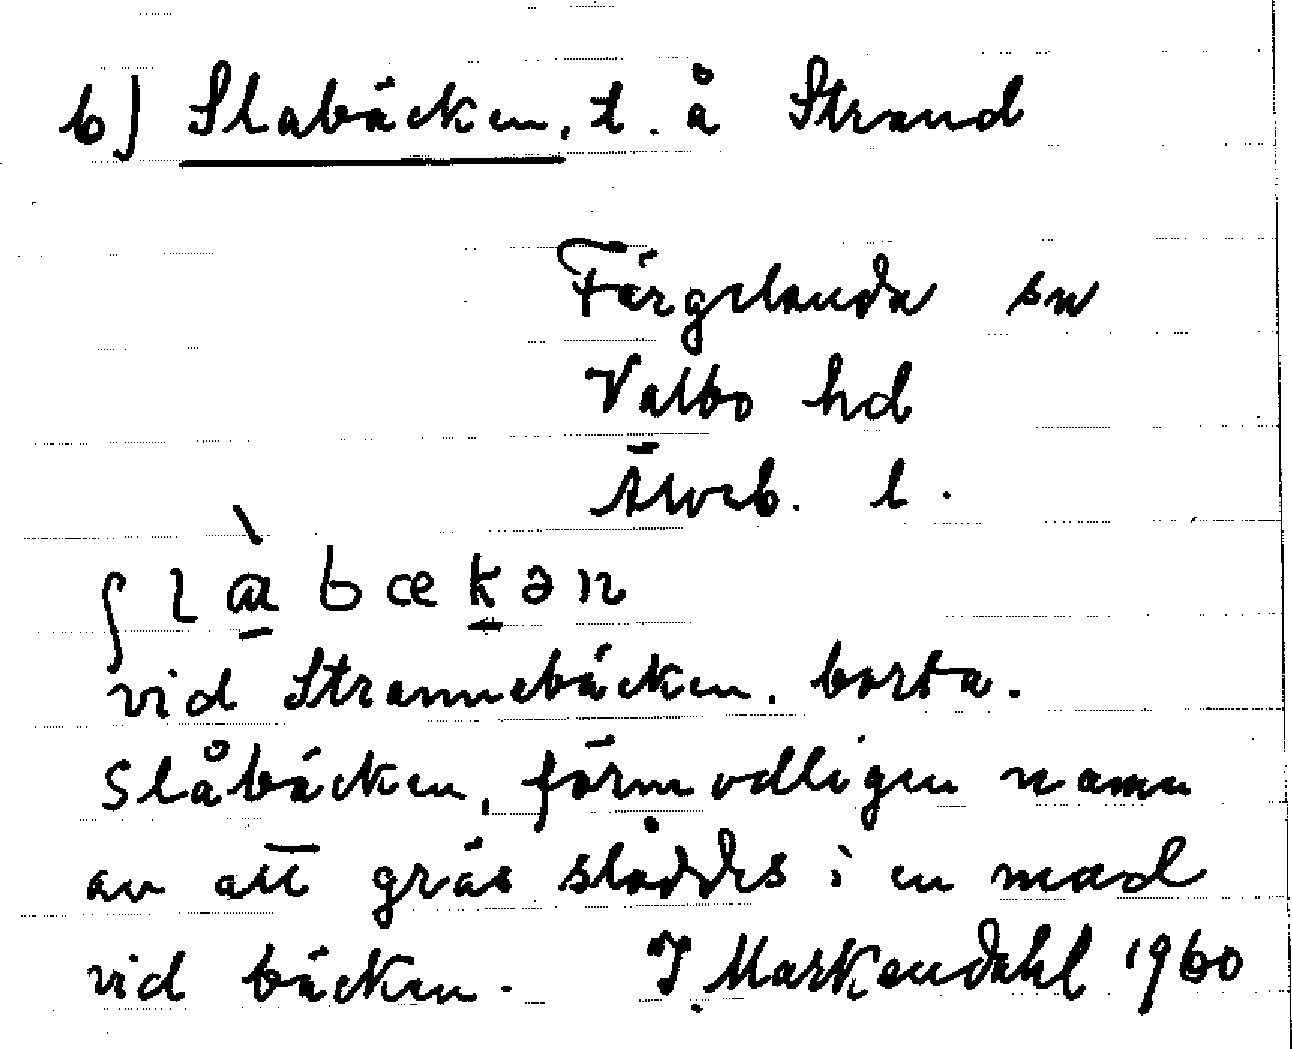 b) Slabäcken, t. å Strand
Färgelanda sn
Valbo hd
Älvsb. l.
ʃlàbækən
vid Strannebäcken. borta.
Slåbäcken, förmodligen namn
av att gräs slåddes i en mad
vid bäcken. J. Markendahl 1960